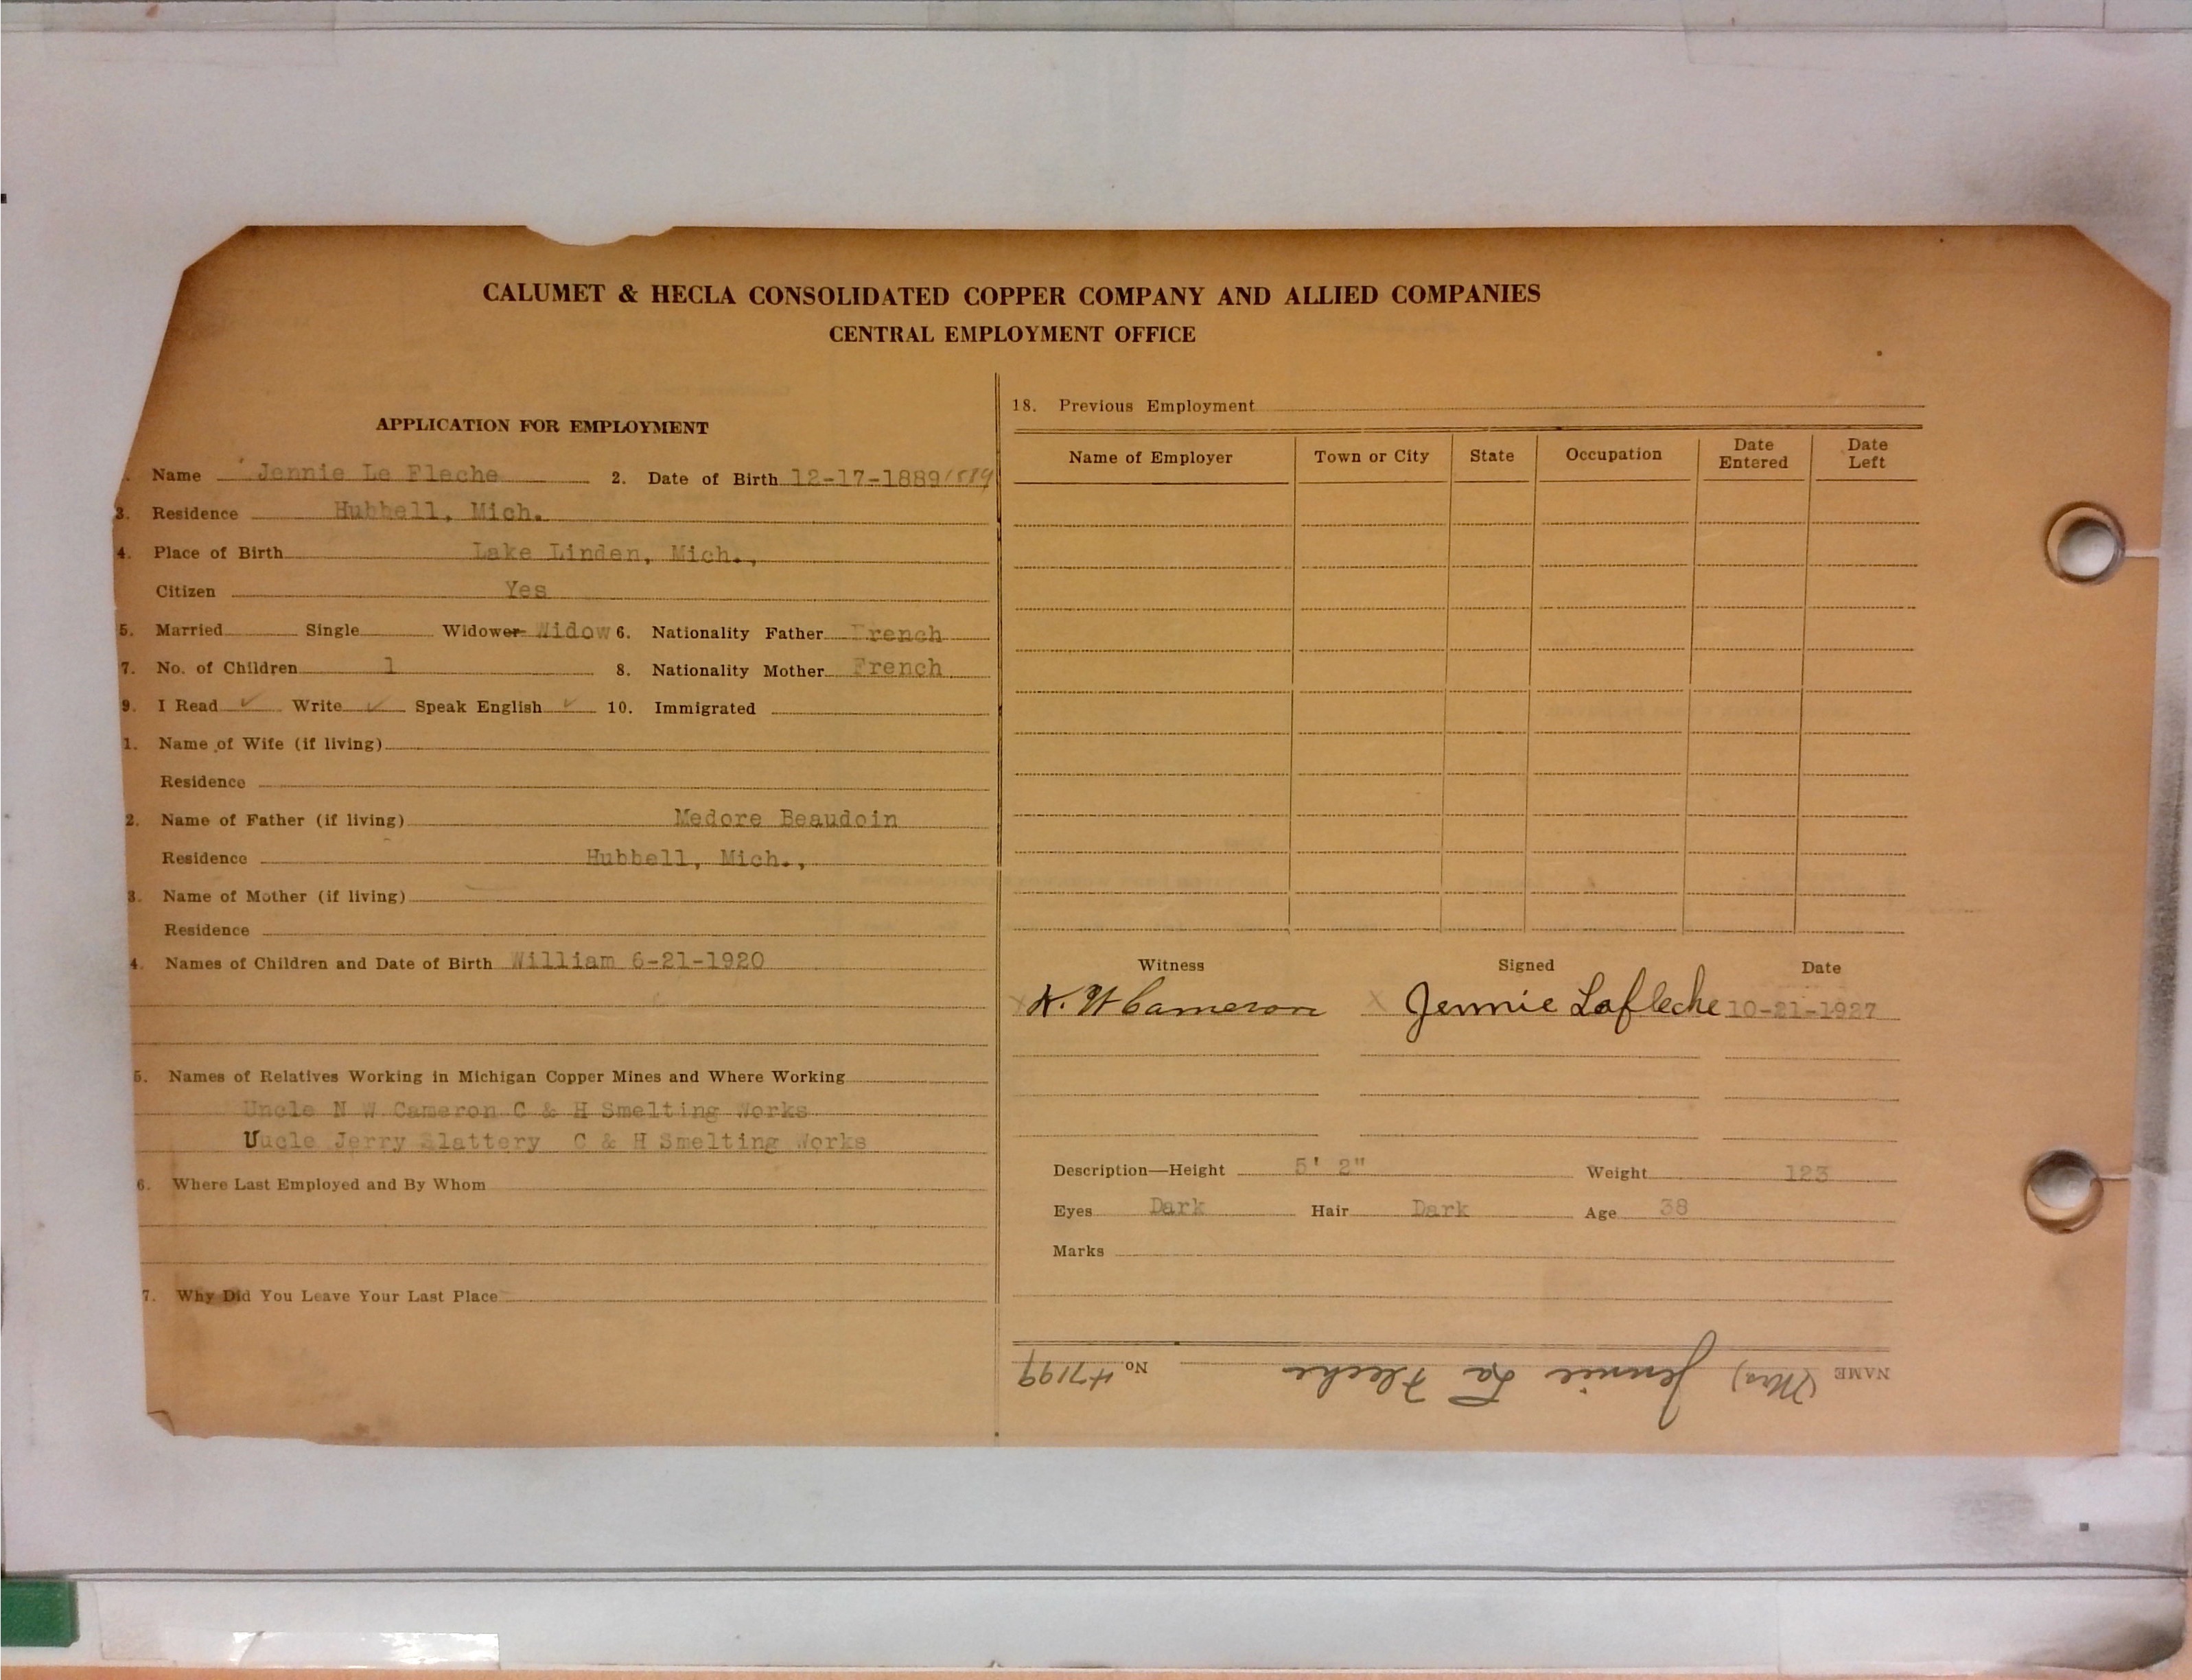 CALUMET & HECLA CONSOLIDATED COPPER COMPANY AND ALLIED COMPANIES
CENTRAL EMPLOYMENT OFFICE
APPLICATION FOR EMPLOYMENT
. Name Jennie Le Fleche 2. Date of Birth 12-17-1889 1889
3. Residence Hubbell, Mich.
4. Place of Birth Lake Linden, Mich.,
Citizen Yes
5. Married Single Widower Widow 6. Nationality Father French
7. No. of Children 1 8. Nationality Mother French
9. I Read ✓ Write ✓ Speak English ✓ 10. Immigrated
1. Name of Wife (if living)
Residence
2. Name of Father (if living) Medore Beaudoin
Residence Hubbell, Mich.,
3. Name of Mother (if living)
Residence
4. Names of Children and Date of Birth William 6-21-1920
5. Names of Relatives Working in Michigan Copper Mines and Where Working
Uncle N W Cameron C & H Smelting Works
Uucle Jerry Slattery C & H Smelting Works
6. Where Last Employed and By Whom
7. Why Did You Leave Your Last Place
18. Previous Employment
Name of Employer Town or City State Occupation Date Entered Date Left
Witness Signed Date
X N. W Cameron X Jennie Lafleche 10-21-1927
Description—Height 5' 2" Weight 123
Eyes Dark Hair Dark Age 38
Marks
NAME (Mrs) Jennie La Fleche No. 47199